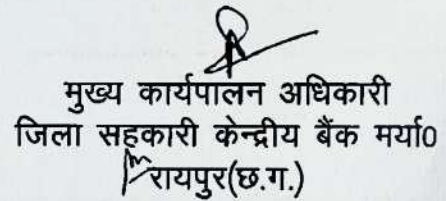 मुख्य कार्यपालन अधिकारी
जिला सहकारी केन्द्रीय बैंक मर्या0
रायपुर(छ.ग.)